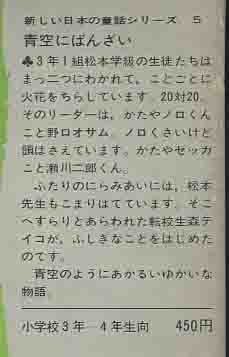 新しい日本の童話シリーズ 5
青空にばんざい
♣3年1組松本学級の生徒たちは
まっ二つにわかれて，ことごとに
火花をちらしています。20対20。
そのリーダーは，かたやノロくん
こと野口オサム。ノロくさいけど
頭はさえています。かたやセッカ
こと瀬川二郎くん。
ふたりのにらみあいには，松本
先生もこまりはてています。そこ
へすらりとあらわれた転校生森テ
イコが，ふしぎなことをはじめた
のです。
青空のようにあかるいゆかいな
物語。
小学校3年—4年生向 450円